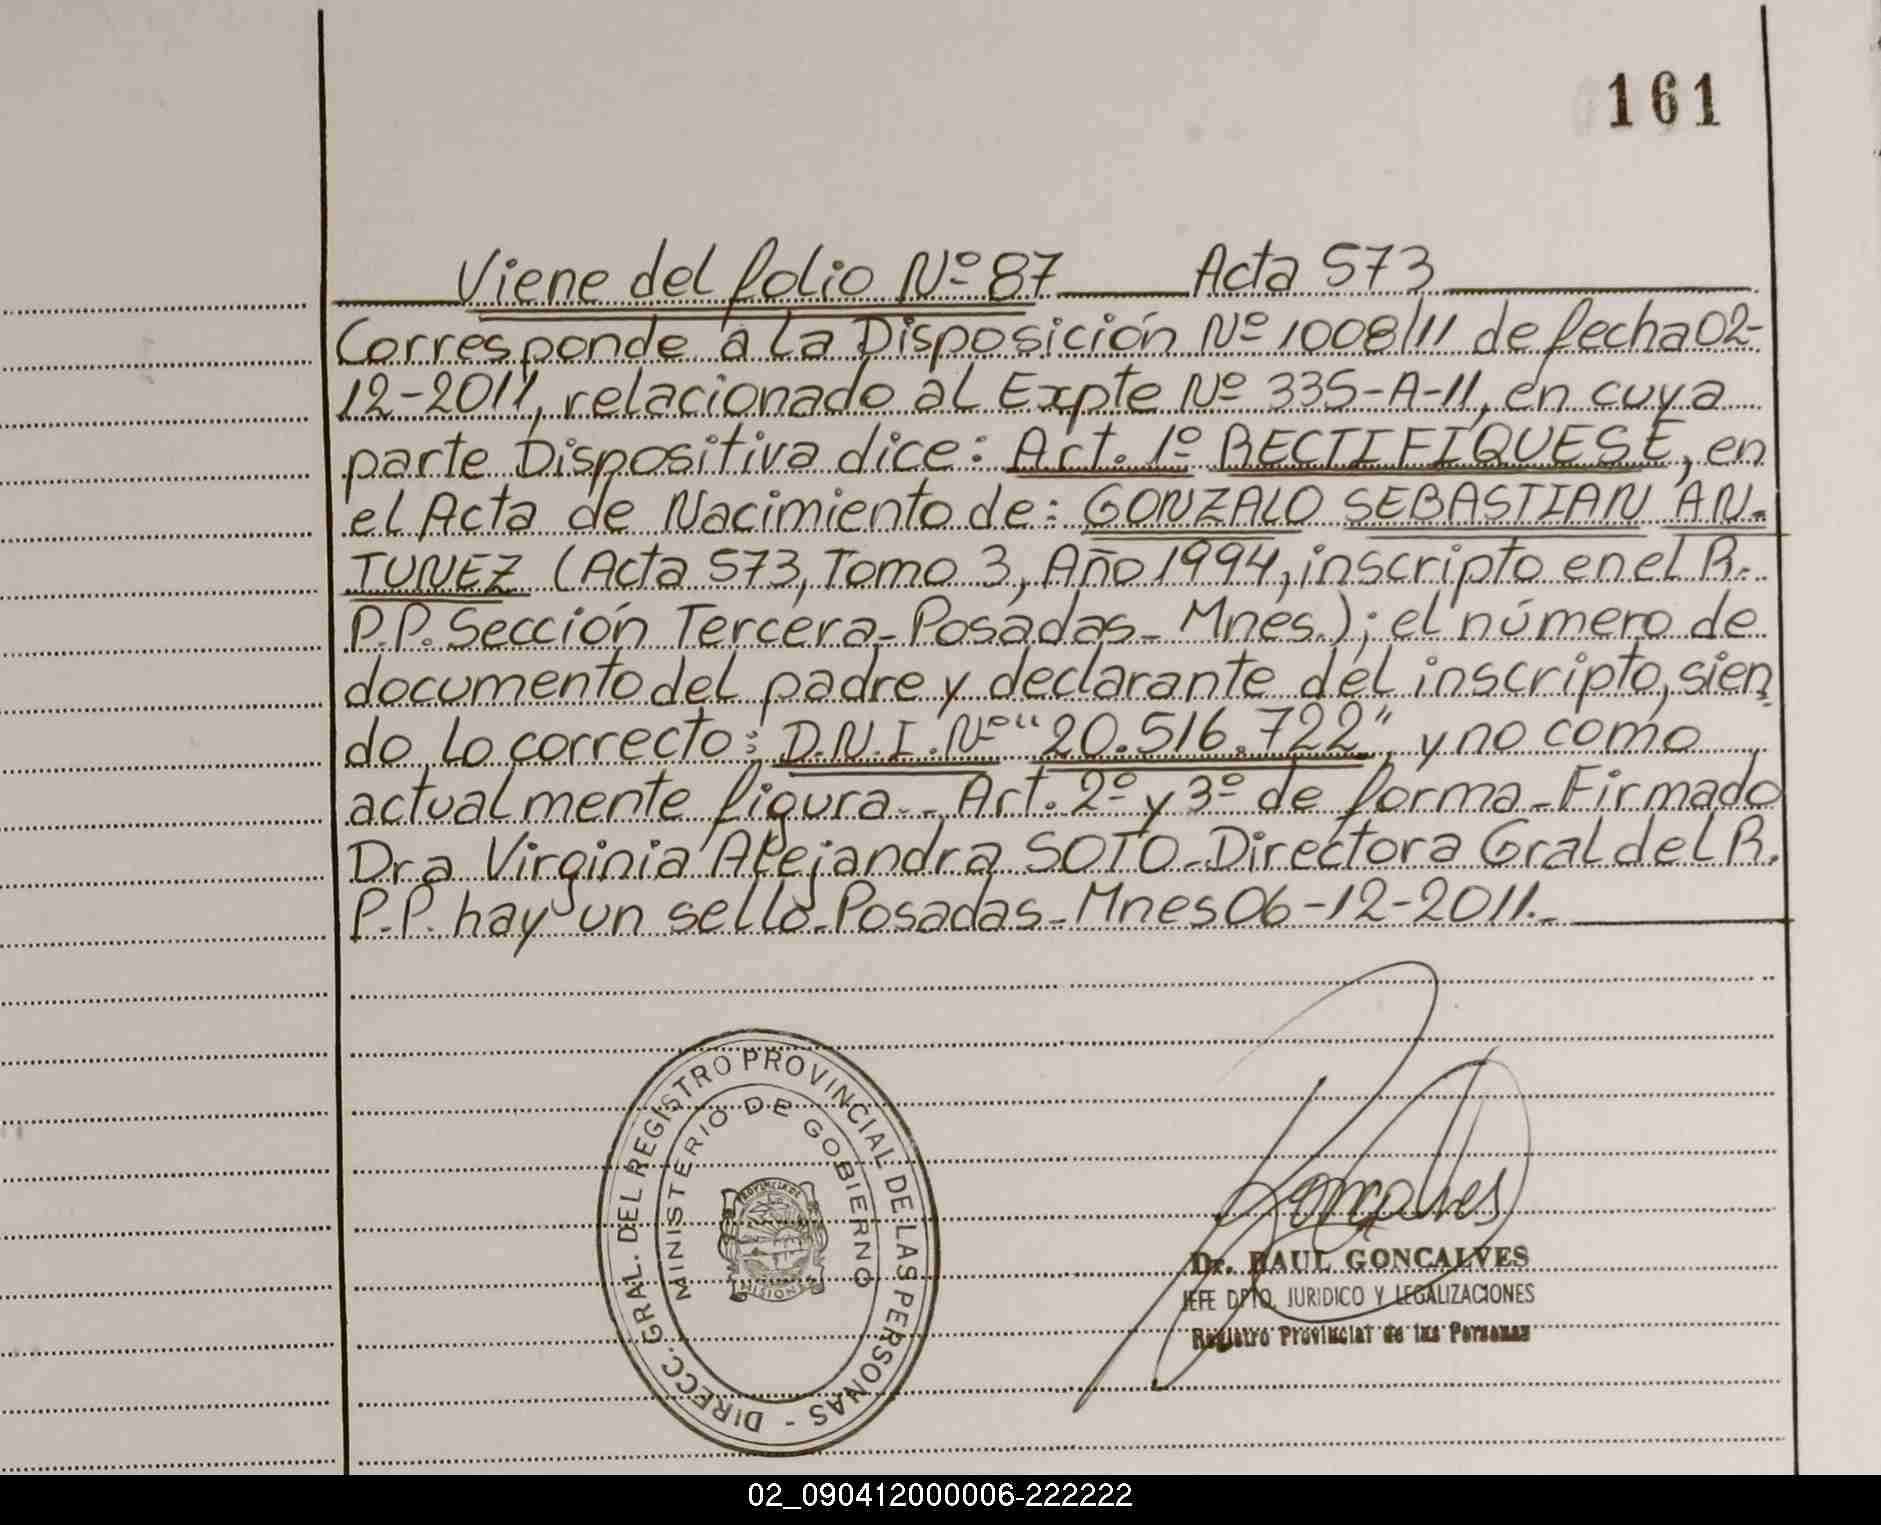 161
Viene del folio Nº 87 Acta 573
Corresponde a la Disposición Nº 1008/11 de fecha 02-
12-2011, relacionado al Expte Nº 335-A-11, en cuya
parte Dispositiva dice: Art. 1º RECTIFIQUESE, en
el Acta de Nacimiento de: GONZALO SEBASTIAN AN-
TUNEZ (Acta 573, Tomo 3, Año 1994, inscripto en el R.
P.P. Sección Tercera - Posadas - Mnes.); el número de
documento del padre y declarante del inscripto, sien
do lo correcto: D.N.I. Nº "20.516.722", y no como
actualmente figura.- Art. 2º y 3º de forma - Firmado
Dra Virginia Alejandra SOTO - Directora Gral del R.
P.P. hay un sello - Posadas - Mnes 06-12-2011.-
DIRECC. GRAL. DEL REGISTRO PROVINCIAL DE LAS PERSONAS -
MINISTERIO DE GOBIERNO
PROVINCIA DE
MISIONES
Goncalves
Dr. RAUL GONCALVES
JEFE DPTO. JURIDICO Y LEGALIZACIONES
Registro Provincial de las Personas
02_090412000006-222222